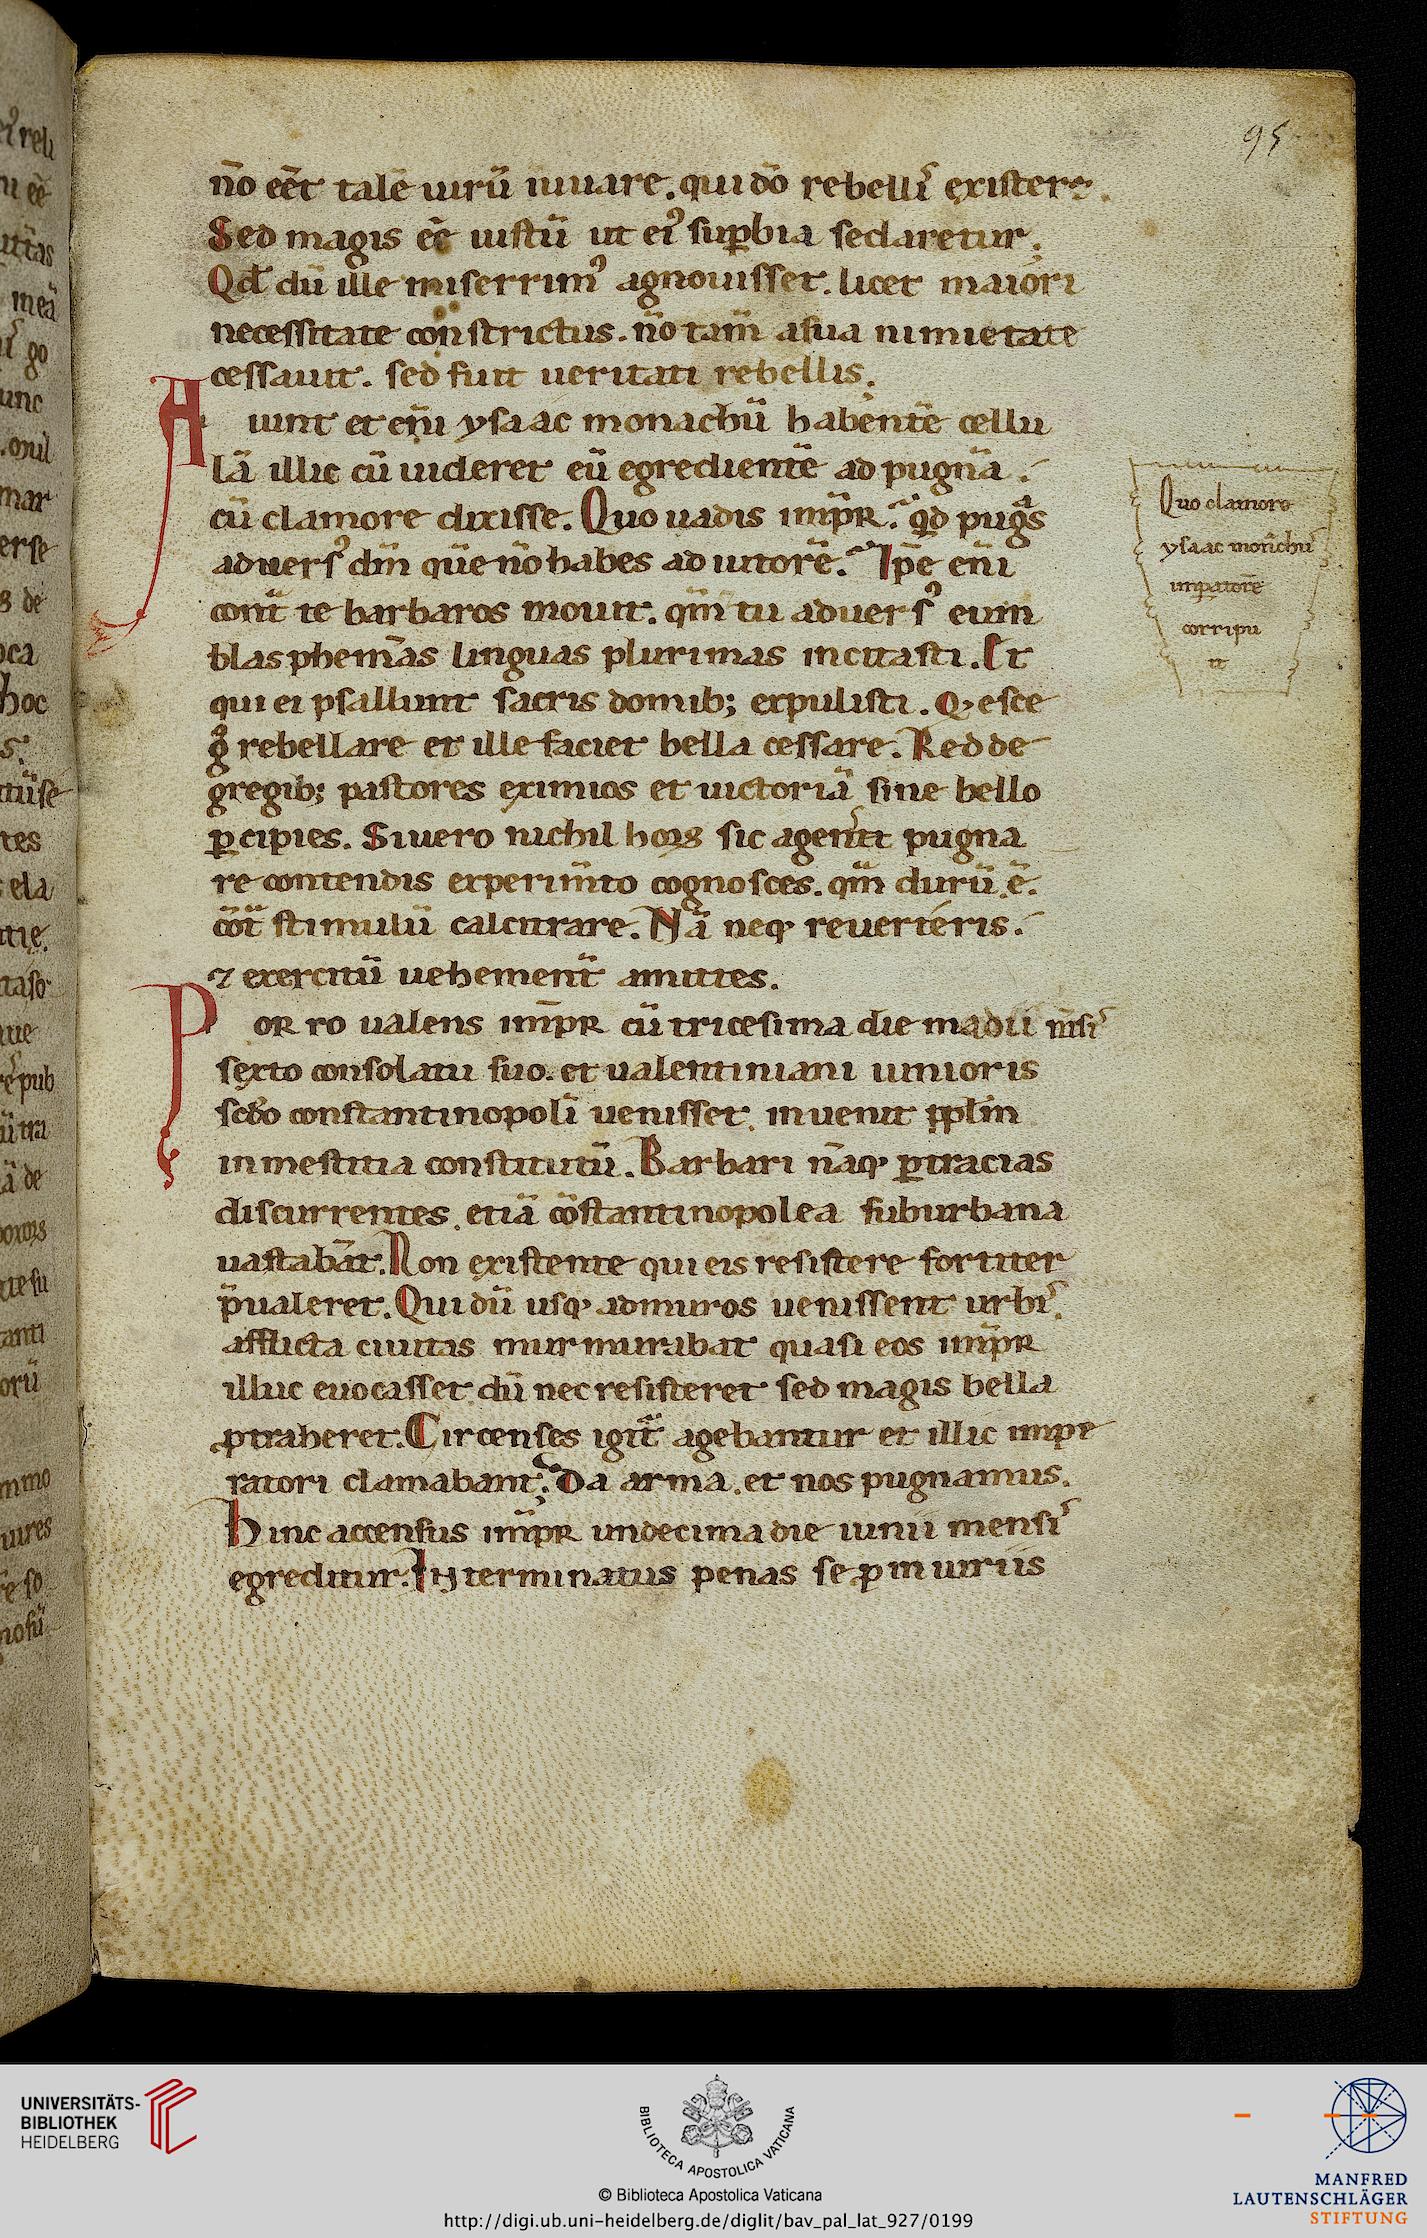 95
n̄o eēt talē uirū iuuare. qui dō rebellı̉ existere.
Sed magis eē iustū ut eı᾽ suꝑbia sedaretur.
Qd̄ dū ille miserrim᾽ agnouisset. licet maiori
necessitate constrictus. n̄o tam̄ a sua nimietate
cessauit. sed fuit ueritati rebellis.
Aiunt et eni̅ ysaac monachū habentē cellu
lā illic cū uideret eū egredientē ad pugnā.
cū clamore dixisse. Quo uadis imp̄r. q̇d pugᷓs
aduers᾽ dm̄ quē n̄o habes adiutorē. Ip̄e eni̅
cont̄ te barbaros mouit. qm̄ tu aduers᾽ eum
blasphemās linguas plurimas incitasti. Et
qui ei psallunt sacris domib; expulisti. Q̇esce
g̊ rebellare et ille faciet bella cessare. Redde
gregib; pastores eximios et uictoriā sine bello
ꝑcipies. Si uero nichil hoꝝ sic agenti pugna
re contendis experim̄to cognosces. qm̄ durū ē.
cōt̄ stimulū calcitrare. Nā neq; reuerteris.
⁊ exercitū uehement̄ amittes.
Porro ualens imp̄r cū tricesima die madii m̄sı̉
sexto consolatu suo. et ualentiniani iunioris
scd̄o constantinopolī uenisset. inuenit pp̄lm
in mestitia constitutū. Barbari nāq; ꝑ tracias
discurrentes. etiā cōstantinopolea suburbana
uastabāt. Non existente qui eis resistere fortiter
p̄ualeret. Qui dū usq; ad muros uenissent urbı̉.
afflicta ciuitas murmurabat quasi eos imp̄r
illuc euocasset. dū nec resisteret sed magis bella
ꝓtraheret. Circenses igit̄ agebantur et illic impe
ratori clamabant. Da arma. et nos pugnamus.
Hinc accensus imp̄r undecima die iunii mensı̉
egreditur. Interminatus penas se ꝓ iniuriis
Quo clamore
ysaac monᷓchū
imꝑatorē
corripu
it
UNIVERSITÄTS-
BIBLIOTHEK
HEIDELBERG
BIBLIOTECA APOSTOLICA VATICANA
© Biblioteca Apostolica Vaticana
http://digi.ub.uni-heidelberg.de/diglit/bav_pal_lat_927/0199
MANFRED
LAUTENSCHLÄGER
STIFTUNG